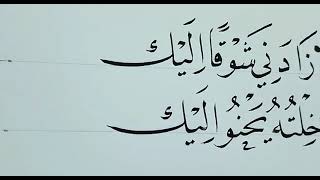 زَادَنِي شَوْقًا اِلَيْك
خِلْتُهُ يَحْنُو اِلَيْك